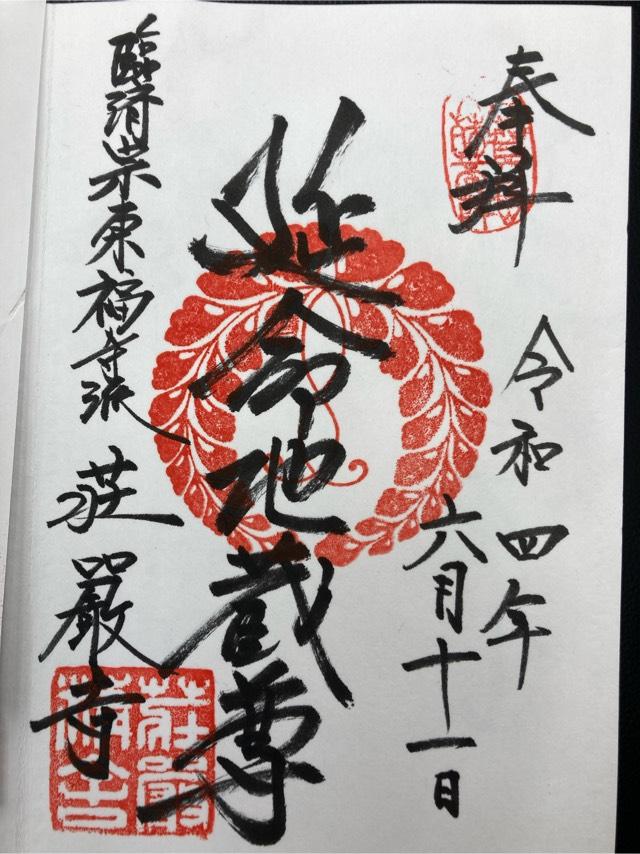 奉拝
令和四年
六月十一日
延命地蔵尊
臨済宗東福寺派 荘嚴寺